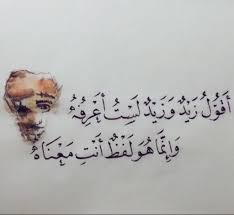 أَقُولُ زَيْدٌ وَزَيْدٌ لَسْتُ أَعْرِفُهُ
وَإِنَّمَا هُوَ لَفْظٌ أَنْتِ مَعْنَاهُ